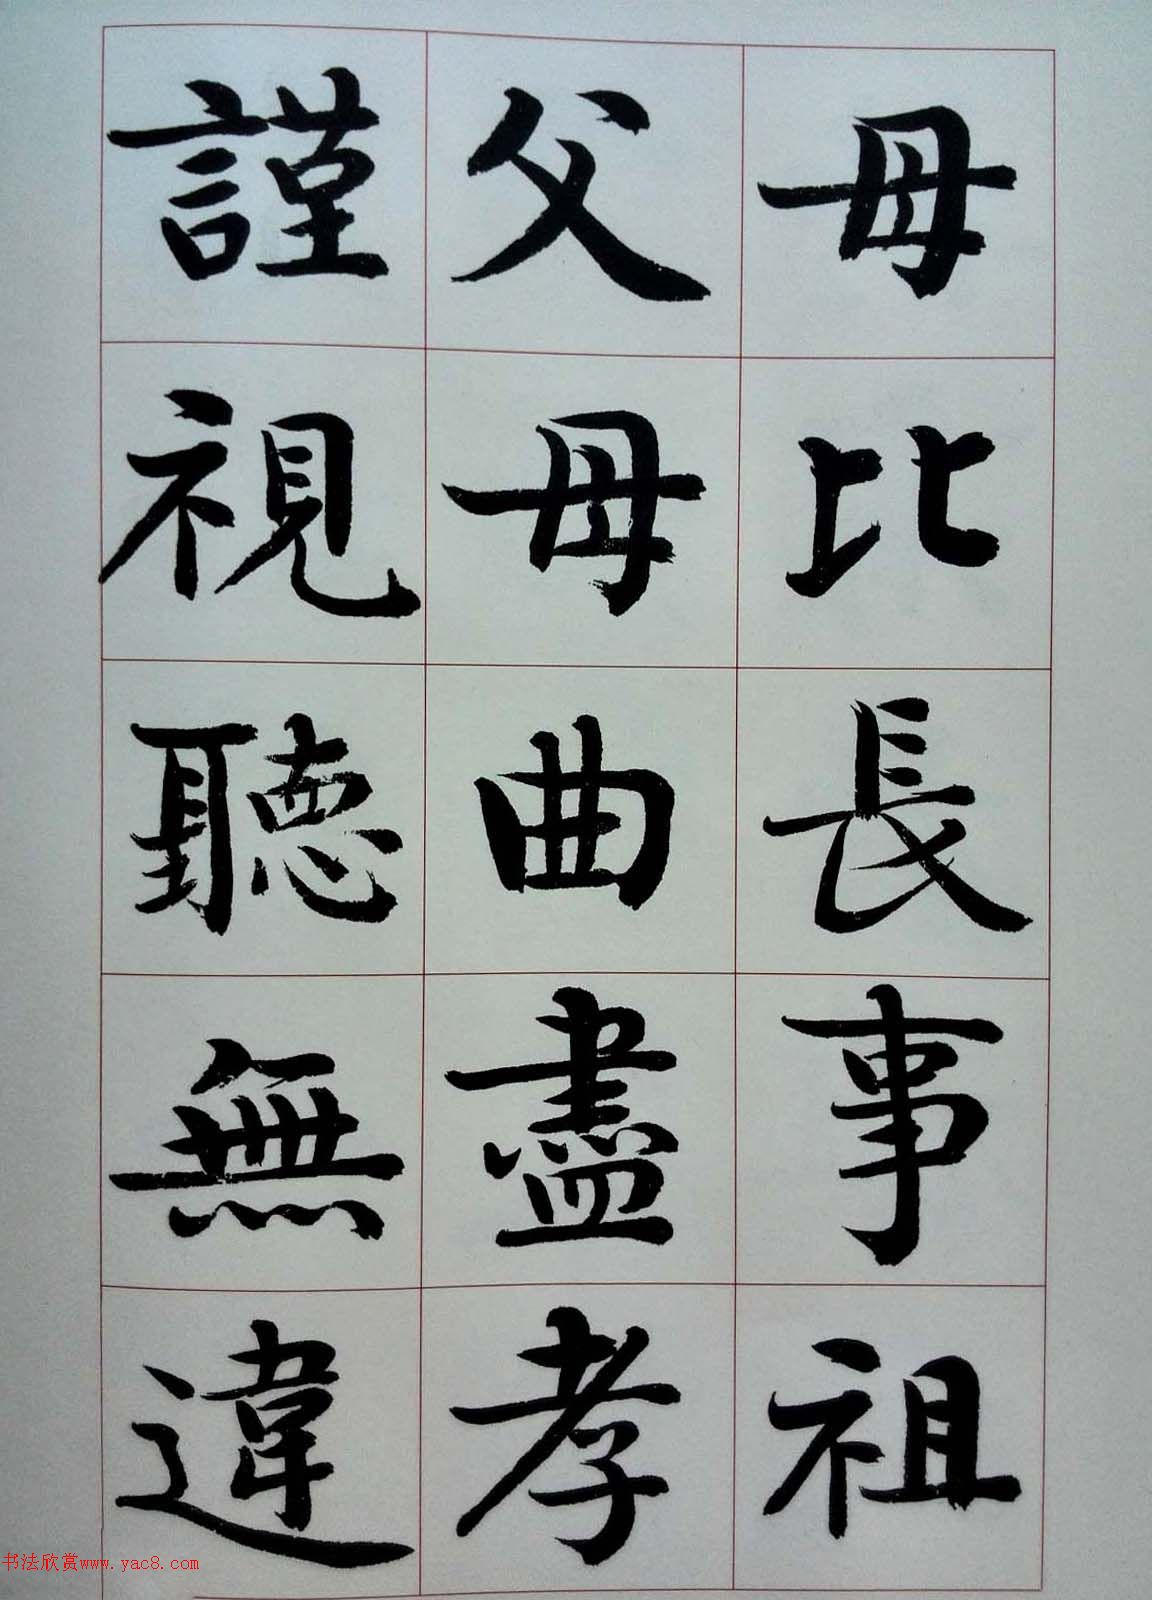 母比長事祖
父母曲盡孝
謹視聽無違
书法欣赏www.yac8.com